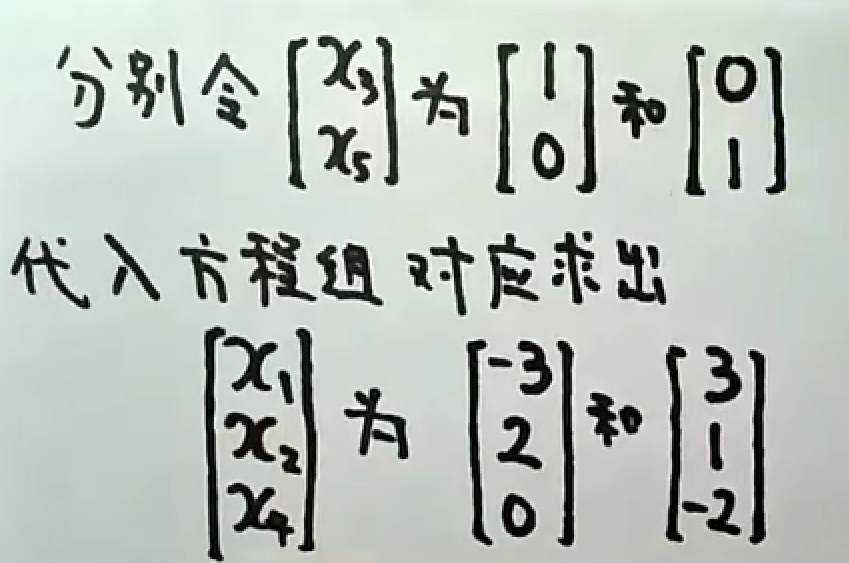 分别令 [x₃ x₅] 为 [1 0] 和 [0 1]
代入方程组 对应求出
[x₁ x₂ x₄] 为 [-3 2 0] 和 [3 1 -2]